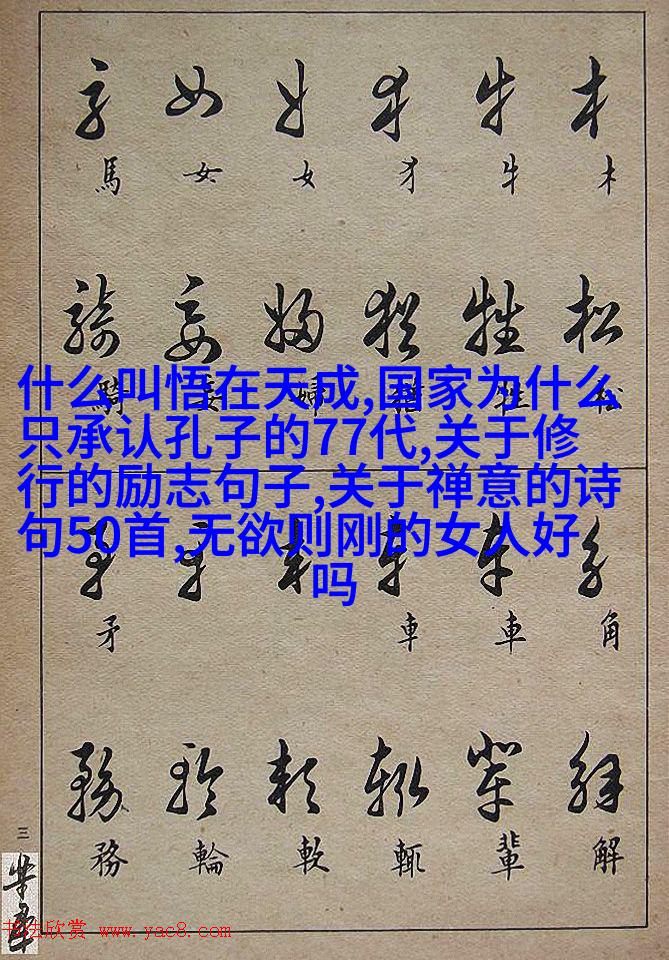 木 牛 犭 女 女 馬
松 牲 猶 婦 妄 騎
什么叫悟在天成,国家为什么
只承认孔子的77代,关于修
行的励志句子,关于禅意的诗
句50首,无欲则刚的女人好
吗
角 車 車 矛
解 輩 輒 軟 輪 務
三
书法欣赏 www.yac8.com